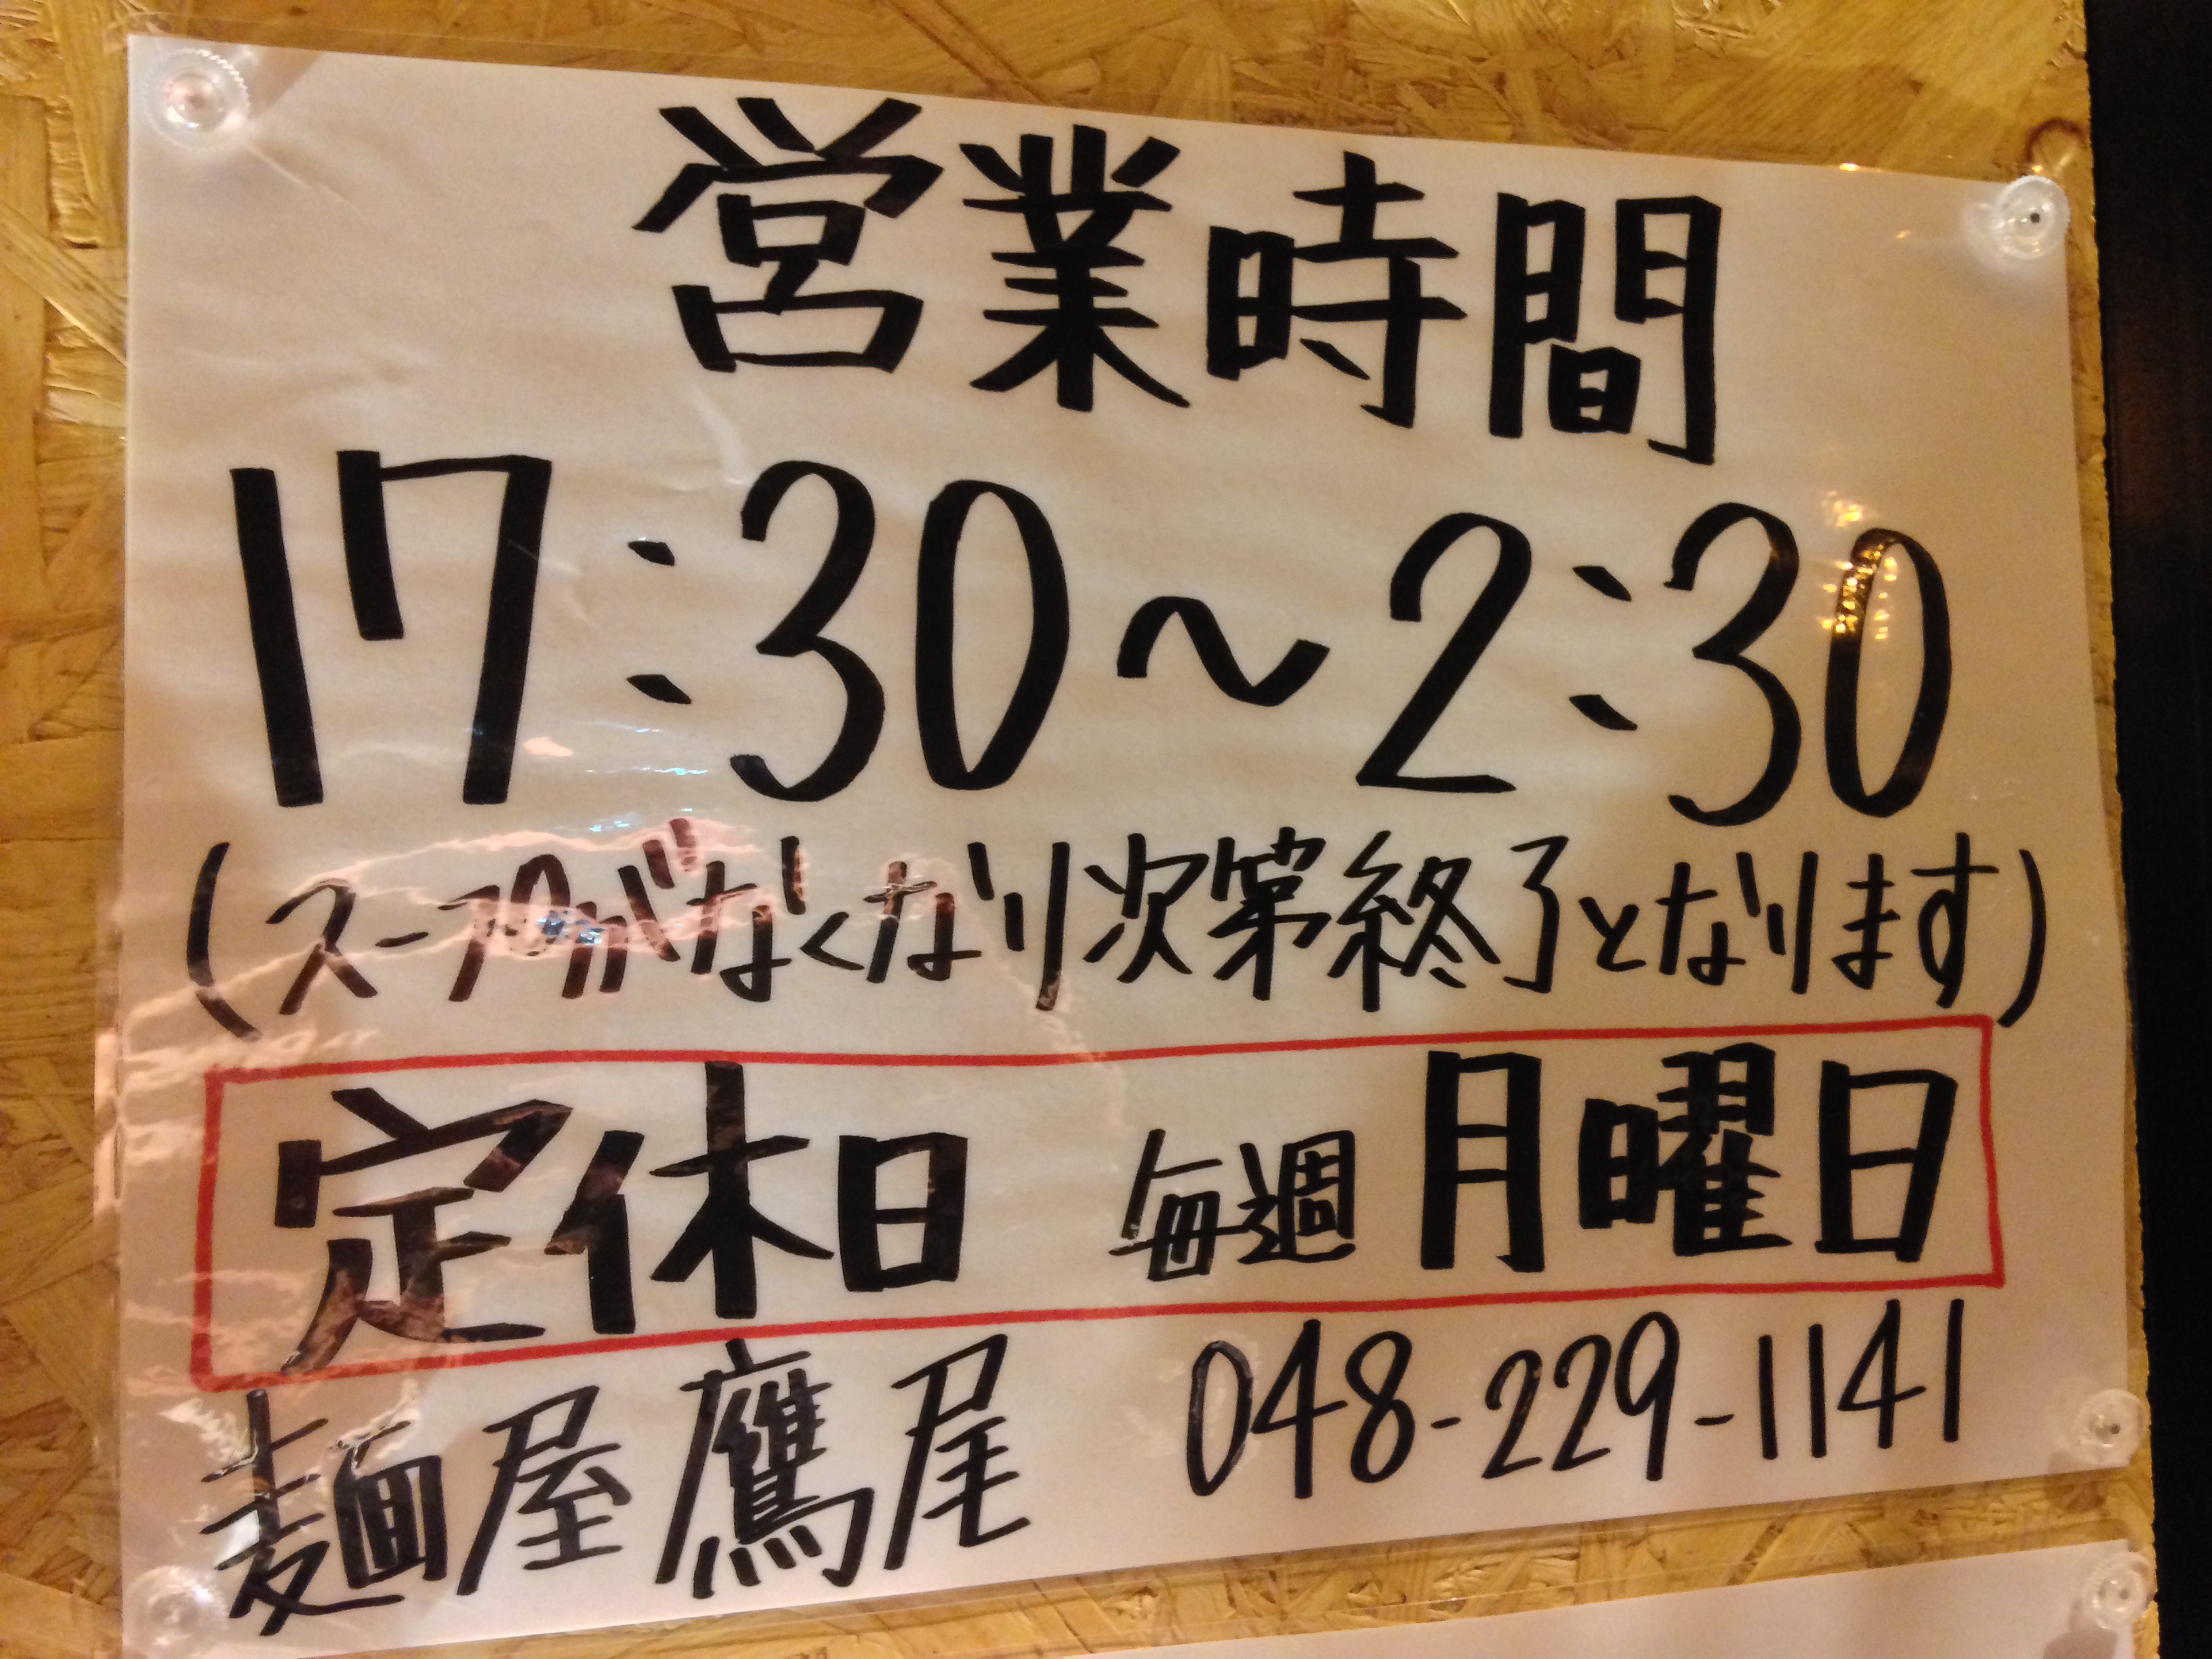 営業時間
17:30~2:30
(スープがなくなり次第終了となります)
定休日 毎週 月曜日
麺屋 鷹尾 048-229-1141